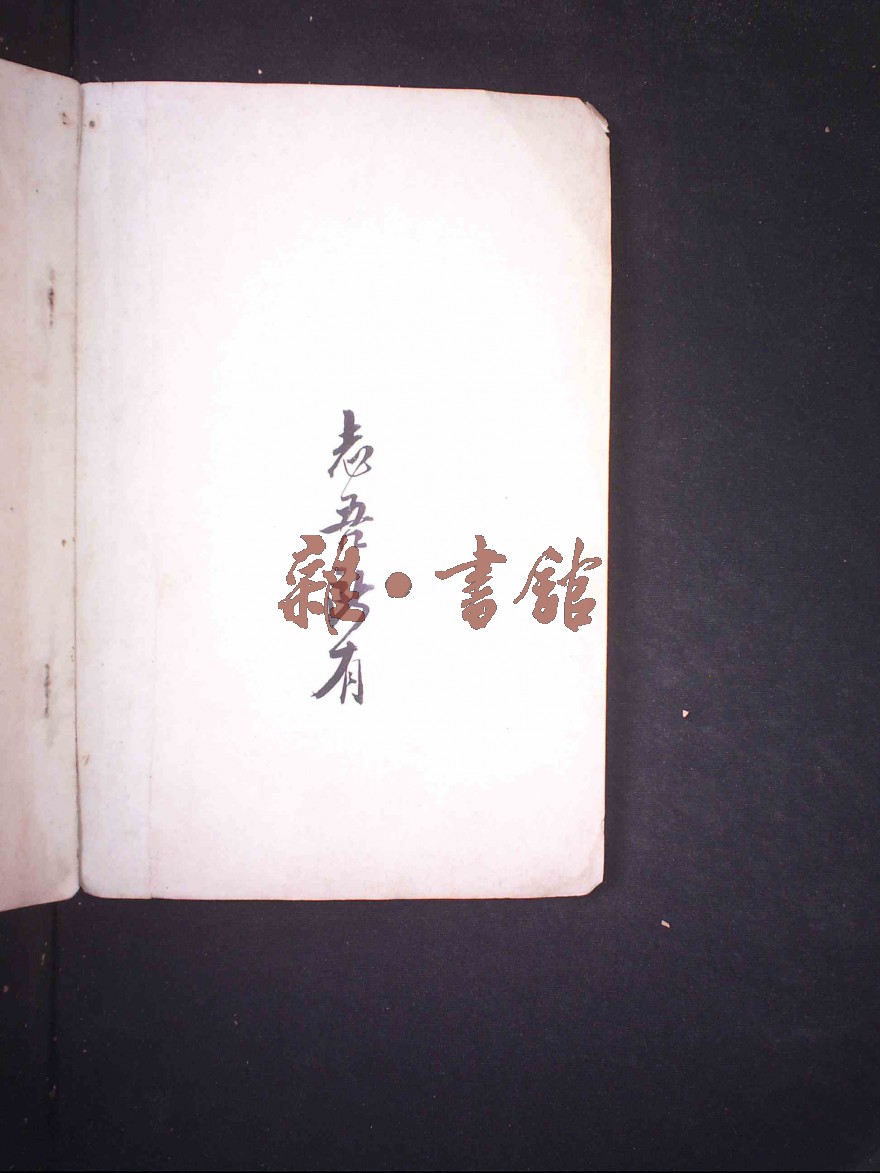 志吾所有
雜·書館